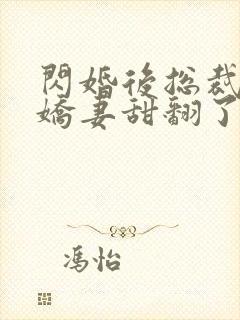 閃婚後總裁
嬌妻甜翻了
馮怡